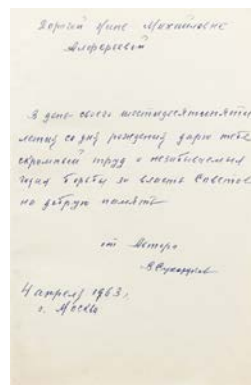 Дорогой Нине Михайловне
Алферьевой
В день своего шестидесятипяти
летия со дня рождения дарю тебе
скромный труд о незабываемых
годах борьбы за власть Советов
на добрую память
от Автора
4 апреля 1963 г.
г. Москва